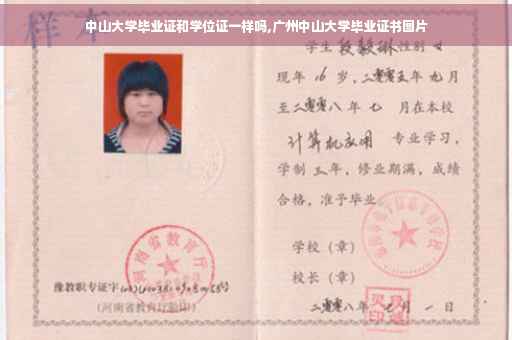 中山大学毕业证和学位证一样吗,广州中山大学毕业证书图片
样本
学生 段毅琳 性别 女
现年 16 岁,二零零五年 九月
至二零零八年 七 月在本校
计算机应用 专业学习,
学制 三 年,修业期满,成绩
合格,准予毕业
学校(章)
校长(章)
河南省教育厅
豫教职专证字
(河南省教育厅验印)
二零零八年 七 月 一 日